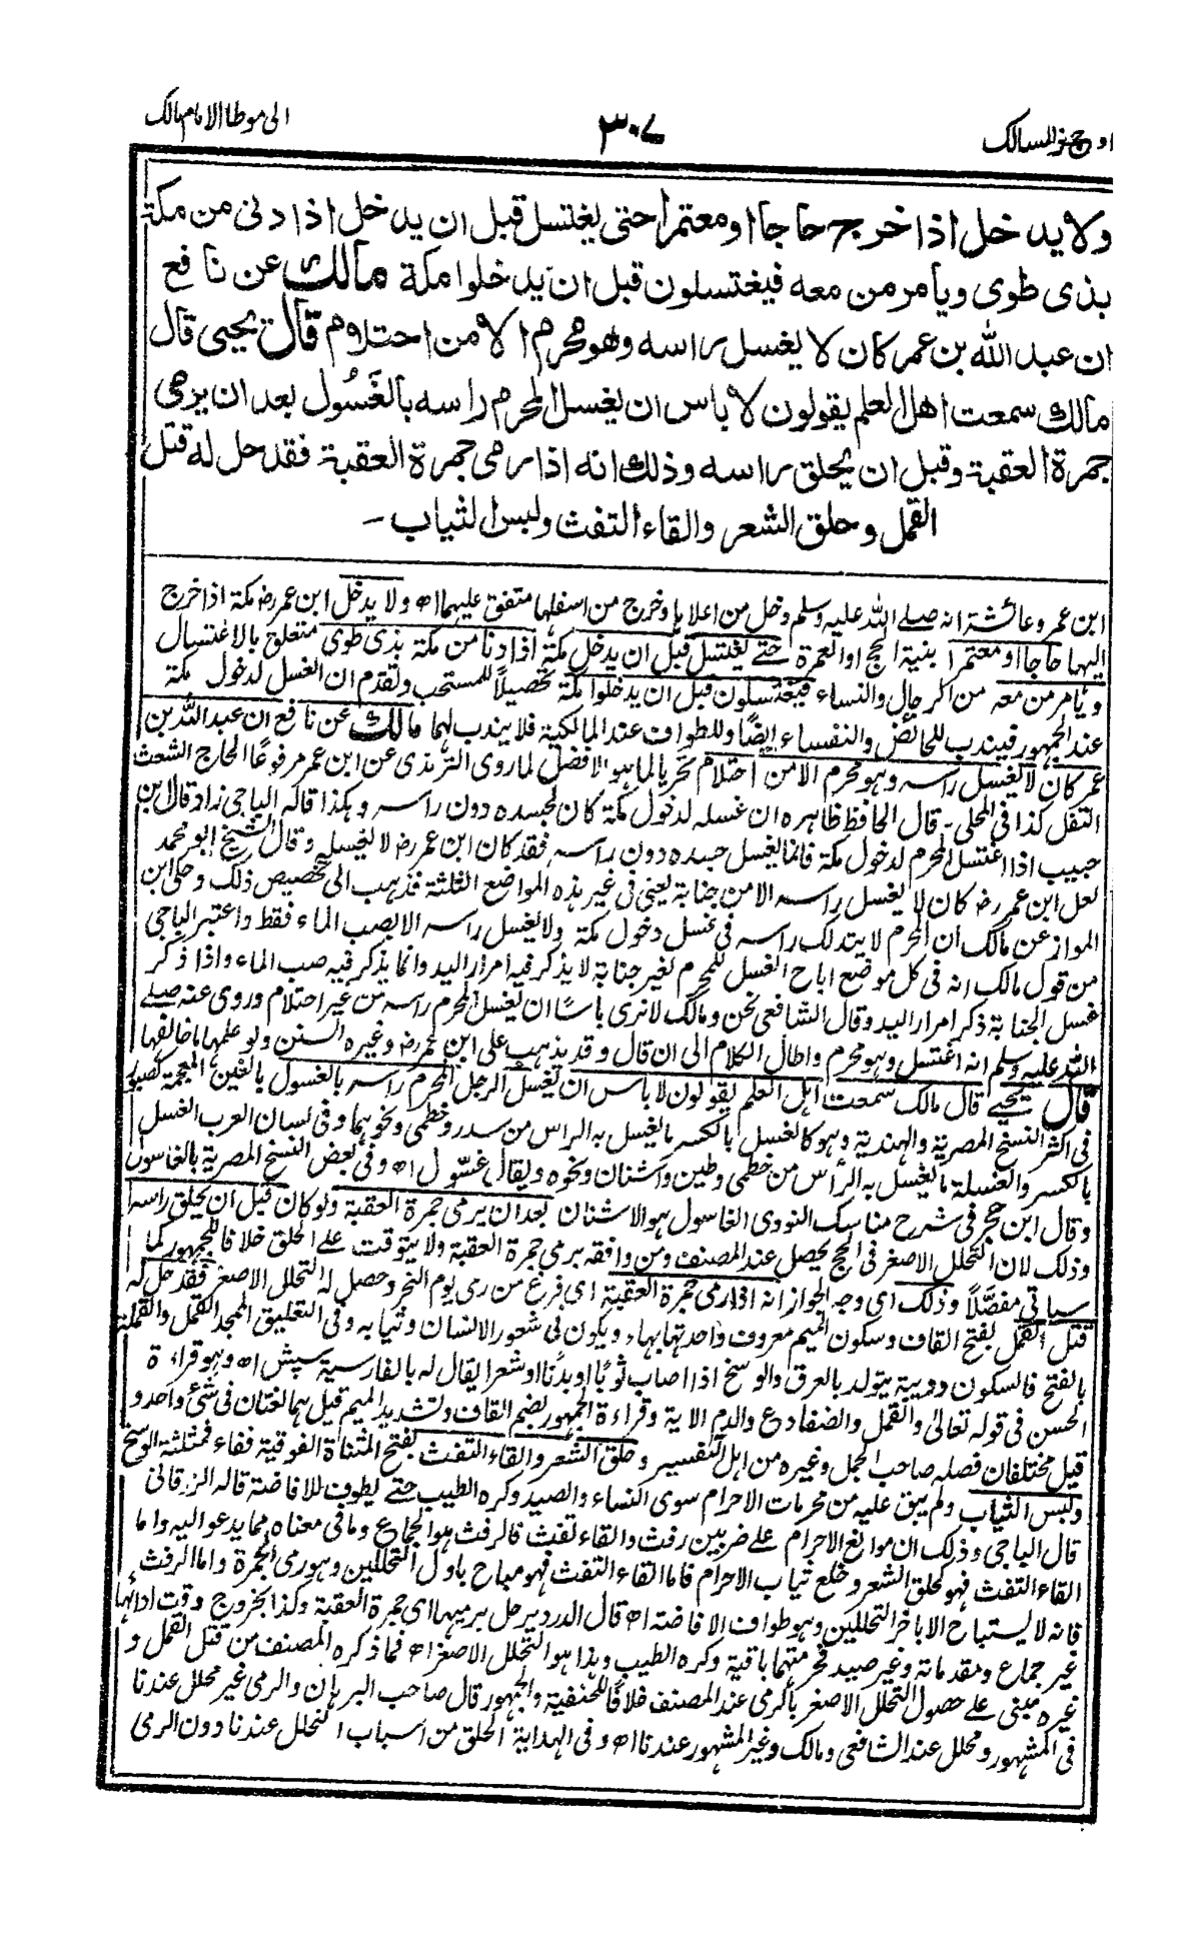 اوجز المسالك
٣٠٧
الى موطا الامام مالك
ولا يدخل اذا خرج حاجا او معتمرا حتى يغتسل قبل ان يدخل اذا دنى من مكة
بذى طوى ويامر من معه فيغتسلون قبل ان يدخلوا مكة مالك عن نافع
ان عبد الله بن عمر كان لا يغسل راسه وهو محرم الا من احتلام قال يحيى قال
مالك سمعت اهل العلم يقولون لا باس ان يغسل المحرم راسه بالغَسُول بعد ان يرمى
جمرة العقبة وقبل ان يحلق راسه وذلك انه اذا رمى جمرة العقبة فقد حل له قتل
القمل وحلق الشعر والقاء التفث ولبس الثياب ـ
ابن عمر وعائشة انه صلے الله عليه وسلم دخل من اعلاها وخرج من اسفلها متفق عليهما اه ولا يدخل ابن عمر رض مكة اذا خرج
اليها حاجا او معتمرا بنية الحج او العمرة حتے يغتسل قبل ان يدخل مكة اذا دنا من مكة بذى طوى متعلق بالاغتسال
ويامر من معه من الرجال والنساء فيغتسلون قبل ان يدخلوا مكة تحصيلاً للمستحب وتقدم ان الغسل لدخول مكة
عند الجمهور فيندب للحائض والنفساء ايضًا وللطواف عند المالكية فلا يندب لهما مالك عن نافع ان عبد الله بن
عمر كان لا يغسل راسه وهو محرم الا من احتلام تحريا لما هو الافضل لما روى الترمذى عن ابن عمر مرفوعًا الحاج الشعث
التفل كذا فى المحلى ـ قال الحافظ ظاهره ان غسله لدخول مكة كان لجسده دون راسه وهكذا قاله الباجى زاد قال ابن
حبيب اذا اغتسل المحرم لدخول مكة فانما يغسل جسده دون راسه فقد كان ابن عمر رض لا يغسله وقال الشيخ ابو محمد
لعل ابن عمر رض كان لا يغسل راسه الا من جنابة يعنى فى غير هذه المواضع الثلثة فذهب الى تخصيص ذلك وحكى ابن
المواز عن مالك ان المحرم لا يتدلك راسه فى غسل دخول مكة ولا يغسل راسه الا بصب الماء فقط واعتبر الباجى
من قول مالك انه فى كل موضع اباح الغسل للمحرم لغير جنابة لا يذكر فيه امرار اليد وانما يذكر فيه صب الماء واذا ذكر
غسل الجنابة ذكر امرار اليد وقال الشافعى نحن ومالك لا نرى باسًا ان يغسل المحرم راسه من غير احتلام وروى عنه صلے
الله عليه وسلم انه اغتسل وهو محرم واطال الكلام الى ان قال وقد يذهب على ابن عمر رض وغيره السنن ولو علمها ما خالفها
قال يحيے قال مالك سمعت اهل العلم يقولون لا باس ان يغسل الرجل المحرم راسه بالغسول بالغين المعجمة كصبور
فى اكثر النسخ المصرية والهندية وهو كالغسل بالكسر ما يغسل به الراس من سدر وخطمى ونحوهما وفى لسان العرب الغسل
بالكسر والغسلة ما يغسل به الرأس من خطمى وطين واشنان ونحوه ويقال غسّول اه وفى بعض النسخ المصرية بالغاسول
وقال ابن حجر فى شرح مناسك النووى الغاسول هو الاشنان بعد ان يرمى جمرة العقبة ولو كان قبل ان يحلق راسه
وذلك لان التحلل الاصغر فى الحج يحصل عند المصنف ومن وافقه برمى جمرة العقبة ولا يتوقف علے الحلق خلافا للجمهور كما
سياتى مفصّلاً وذلك اى وجه الجواز انه اذا رمى جمرة العقبة اى فرغ من رمى يوم النحر وحصل له التحلل الاصغر فقد حل له
قتل القمل بفتح القاف وسكون الميم معروف واحدتها بهاء ويكون فى شعور الانسان وثيابه وفى التعليق الممجد القمل والقملة
بالفتح فالسكون دويبة يتولد بالعرق والوسخ اذا اصاب ثوبًا او بدنًا او شعرا يقال له بالفارسية سپش اه وهو قراءة
الحسن فى قوله تعالىٰ والقمل والضفادع والدم الاية وقراءة الجمهور بضم القاف وتشديد الميم قيل هما لغتان فى شئ واحد و
قيل مختلفان فصله صاحب الجمل وغيره من اهل التفسير وحلق الشعر والقاء التفث بفتح المثناة الفوقية ففاء فمثلثة الوسخ
ولبس الثياب ولم يبق عليه من محرمات الاحرام سوى النساء والصيد وكره الطيب حتے يطوف للافاضة قاله الزرقانى
قال الباجى وذلك ان موانع الاحرام علے ضربين رفث والقاء تفث فالرفث هو الجماع وما فى معناه مما يدعو اليه واما
القاء التفث فهو كحلق الشعر وخلع ثياب الاحرام فاما القاء التفث فهو مباح باول التحللين وهو رمى الجمرة واما الرفث
فانه لا يستباح الا باخر التحللين وهو طواف الافاضة اه قال الدردير حل برميها اى جمرة العقبة وكذا بخروج وقت ادائها
غير جماع ومقدماته وغير صيد فحرمتهما باقية وكره الطيب وهذا هو التحلل الاصغر اه فما ذكره المصنف من قتل القمل و
غيره مبنى علے حصول التحلل الاصغر بالرمى عند المصنف خلافا للحنفية والجمهور قال صاحب البرهان والرمى غير محلل عندنا
فى المشهور ومحلل عند الشافعى ومالك وغير المشهور عندنا اه وفى الهداية الحلق من اسباب التحلل عندنا دون الرمى